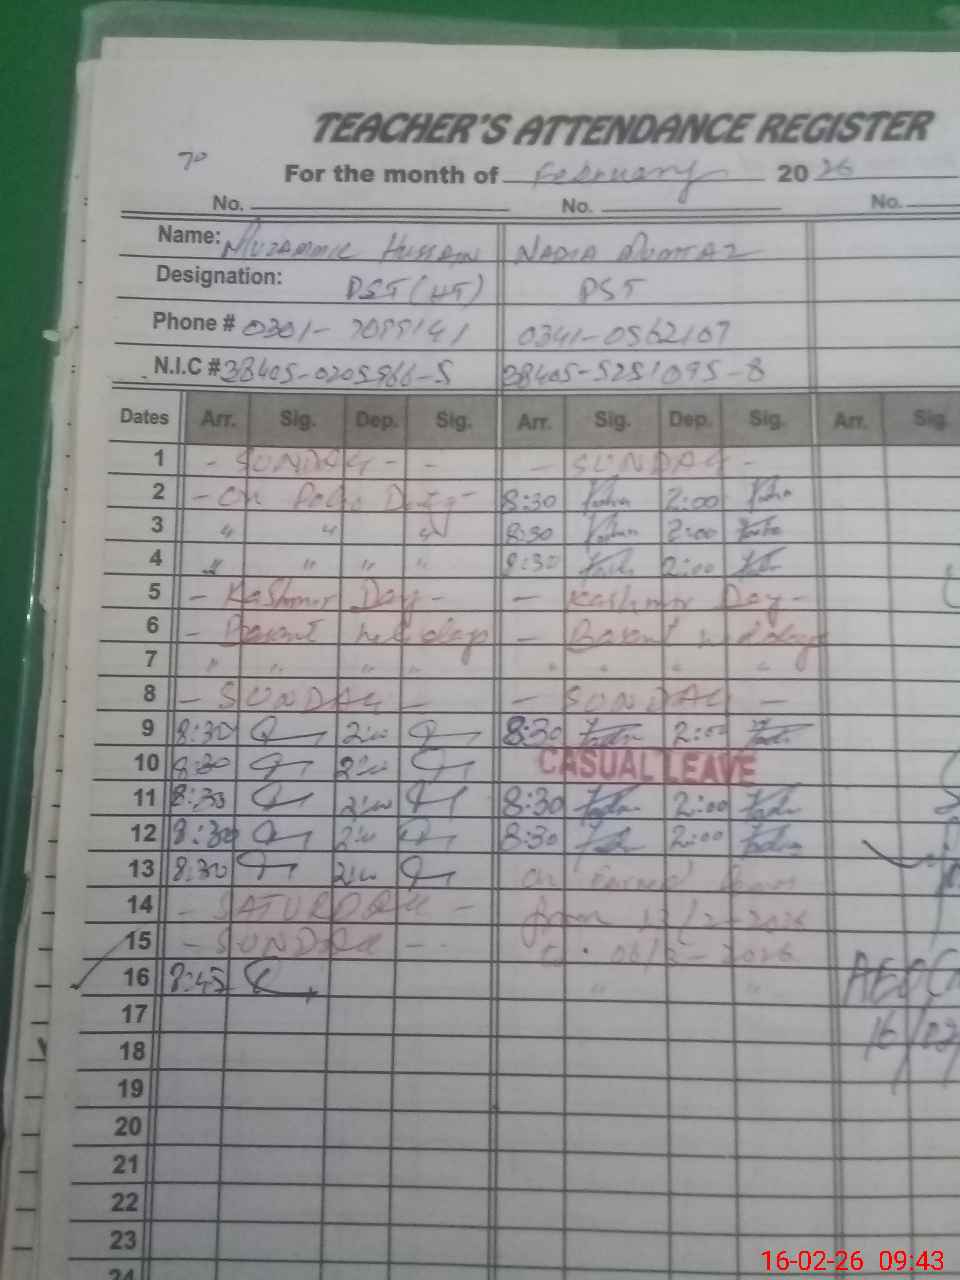 TEACHER'S ATTENDANCE REGISTER
For the month of February 2026
No. No. No.
Name: Muzammil Hussain NADIA MUMTAZ
Designation: PST (HT) PST
Phone # 0301- 0341-0562107
N.I.C # 38405-0205966-5 38405-5251095-8
Dates Arr. Sig. Dep. Sig. Arr. Sig. Dep. Sig. Arr. Sig.
1 - SUNDAY - - - SUNDAY -
2 - On Polio Duty - 8:30 2:00
3 " " " 8:30 2:00
4 " " " " 8:30 2:00
5 - Kashmir Day - - Kashmir Day -
6 - Basant holidays - Basant holidays
7 " " " " " " " "
8 - SUNDAY - - SUNDAY -
9 8:30 2:00 8:30 2:00
10 8:30 2:00 CASUAL LEAVE
11 8:30 2:00 8:30 2:00
12 8:30 2:00 8:30 2:00
13 8:30 2:00 On Earned leave
14 - SATURDAY - from 13/2-2026
15 - SUNDAY - - to 06/3-2026
16 8:45 " " AEO
17 16/02
18
19
20
21
22
23
24
16-02-26 09:43